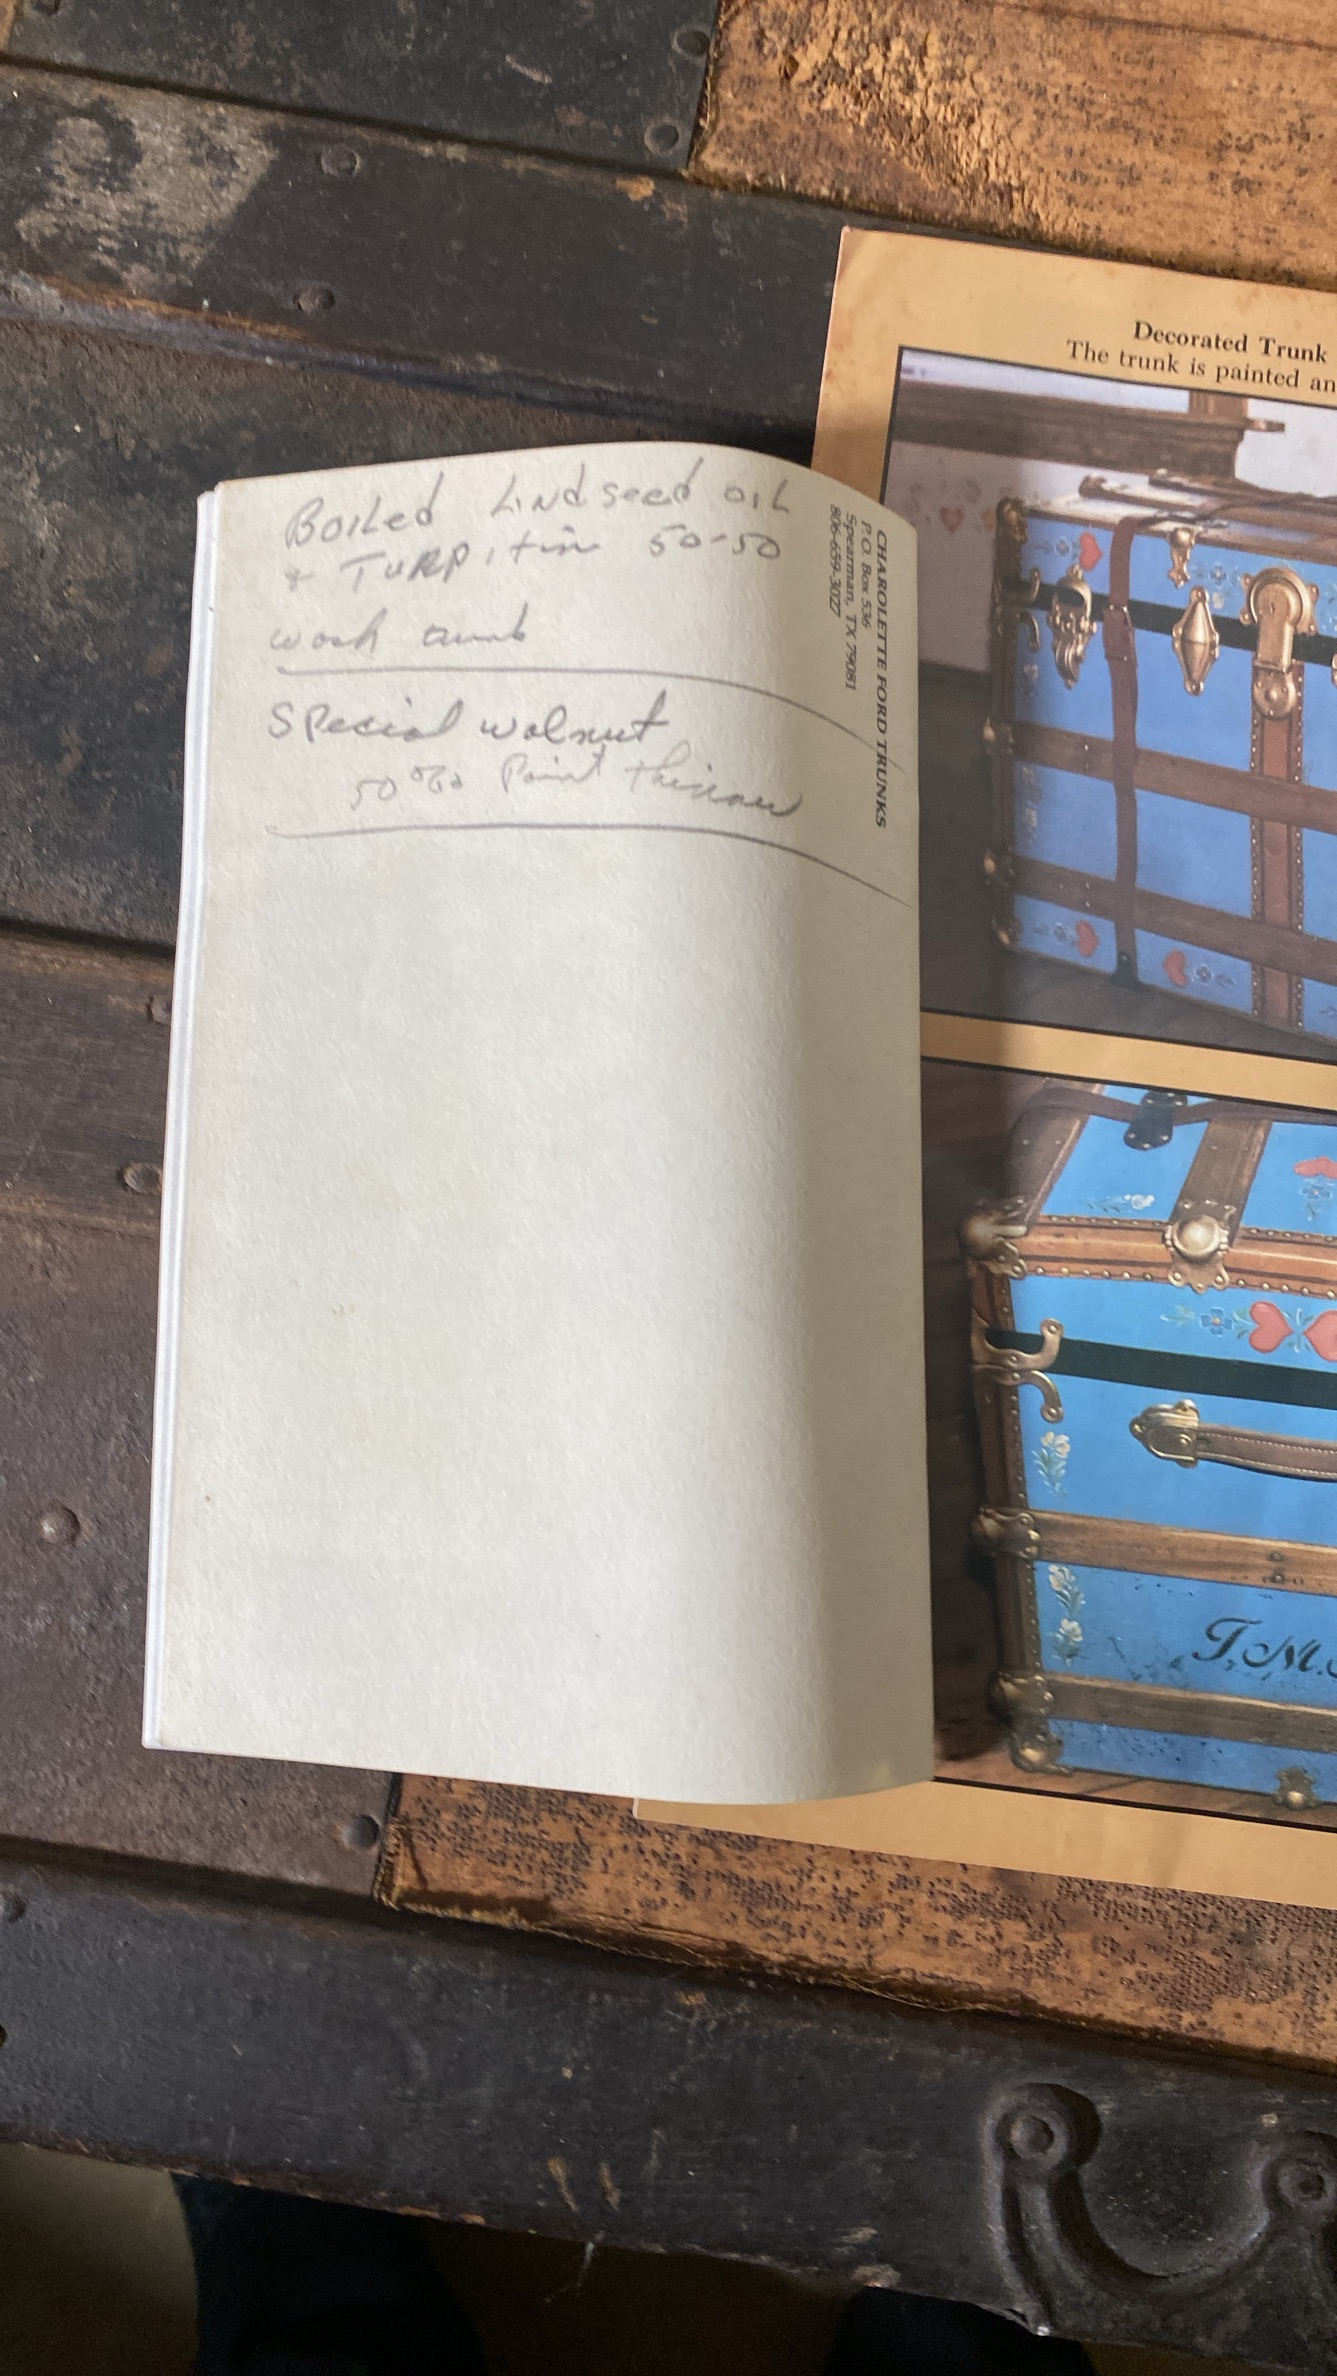 Boiled Lindseed oil
+ Turpitine 50-50
wash trunk
Special walnut
50% Paint thinner
CHAROLETTE FORD TRUNKS
P.O. Box 536
Spearman, TX 79081
806-659-3027
Decorated Trunk
The trunk is painted an